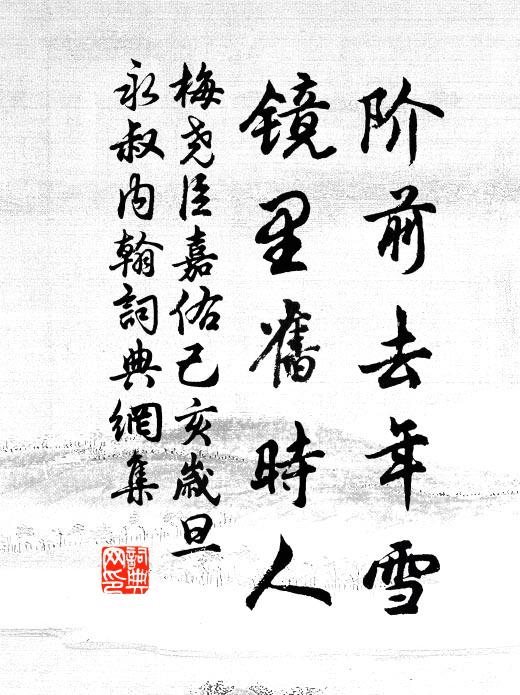 阶前去年雪
镜里舊時人
梅尧臣嘉佑己亥歲旦
永叔内翰詞典網集
詞典
网印